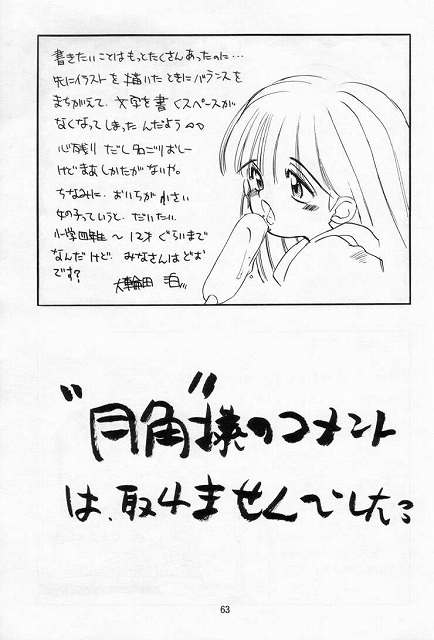 書きたいことはもっとたくさんあったのに…
先にイラストを描いたときにバランスを
まちがえて、文字を書くスペースが
なくなってしまったんだよう
心残りだしなごりおしー
けどまあしかたがないや。
ちなみに、おいらが小さい
女の子っていうと、だいたい
小学四年 〜 12才ぐらいまで
なんだけど、みなさんはどお
です?
大輪田 泊
"月角"様のコメント
は、取れませんでした。
63